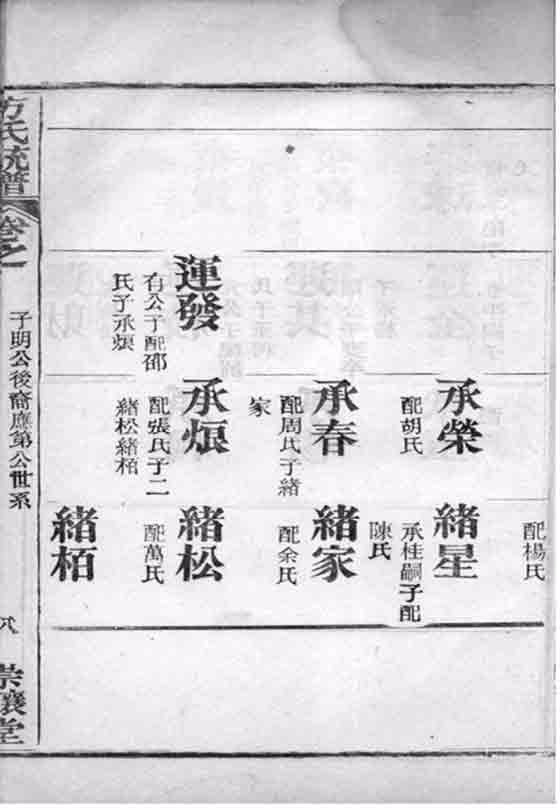 配楊氏
承榮
配胡氏
緒星
承桂嗣子配
陳氏
承春
配周氏子緒
家
緒家
配余氏
運發
有公子配邵
氏子承烺
承烺
配張氏子二
緒松緒栢
緒松
配萬氏
緒栢
方氏統譜
卷之一
子明公後裔應第公世系
崇讓堂